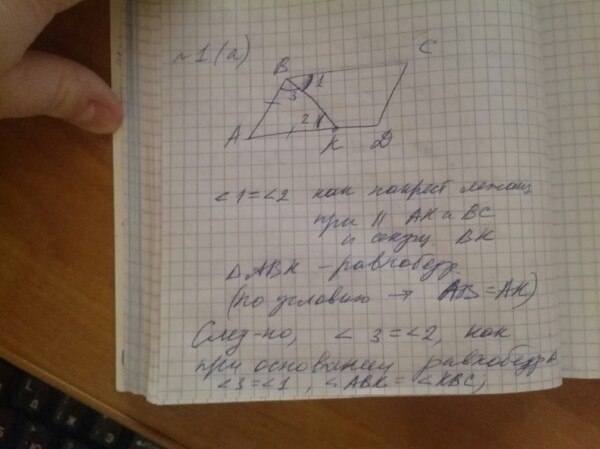 №1(а)
B C
1
3
2
A K D
∠1=∠2 как накрест лежащ
при || AK и BC
и секущ. BK
Δ ABK - равнобедр.
(по условию → AB=AK)
След-но, ∠3=∠2, как
при основании равнобедр Δ
∠3=∠1, ∠ABK=∠KBC,